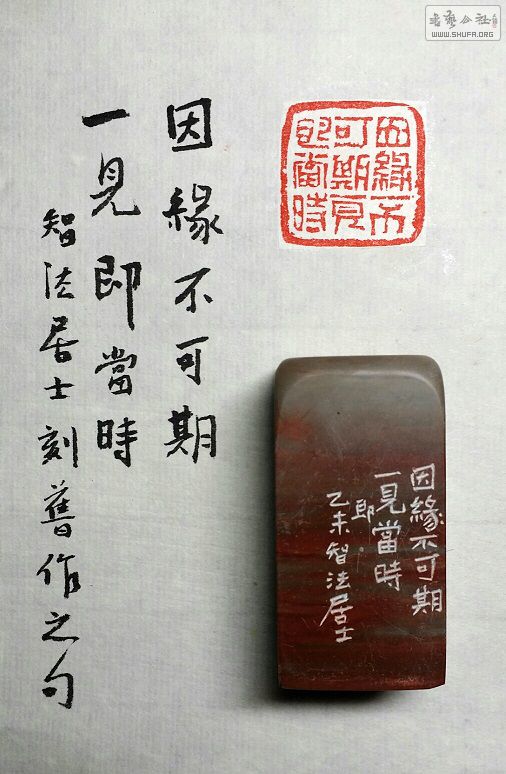 書藝公社
WWW.SHUFA.ORG
因緣不可期
一見即當時
智法居士刻舊作之句
因緣不
可期一見
即當時
因緣不可期
一見當時
即
乙未智法居士